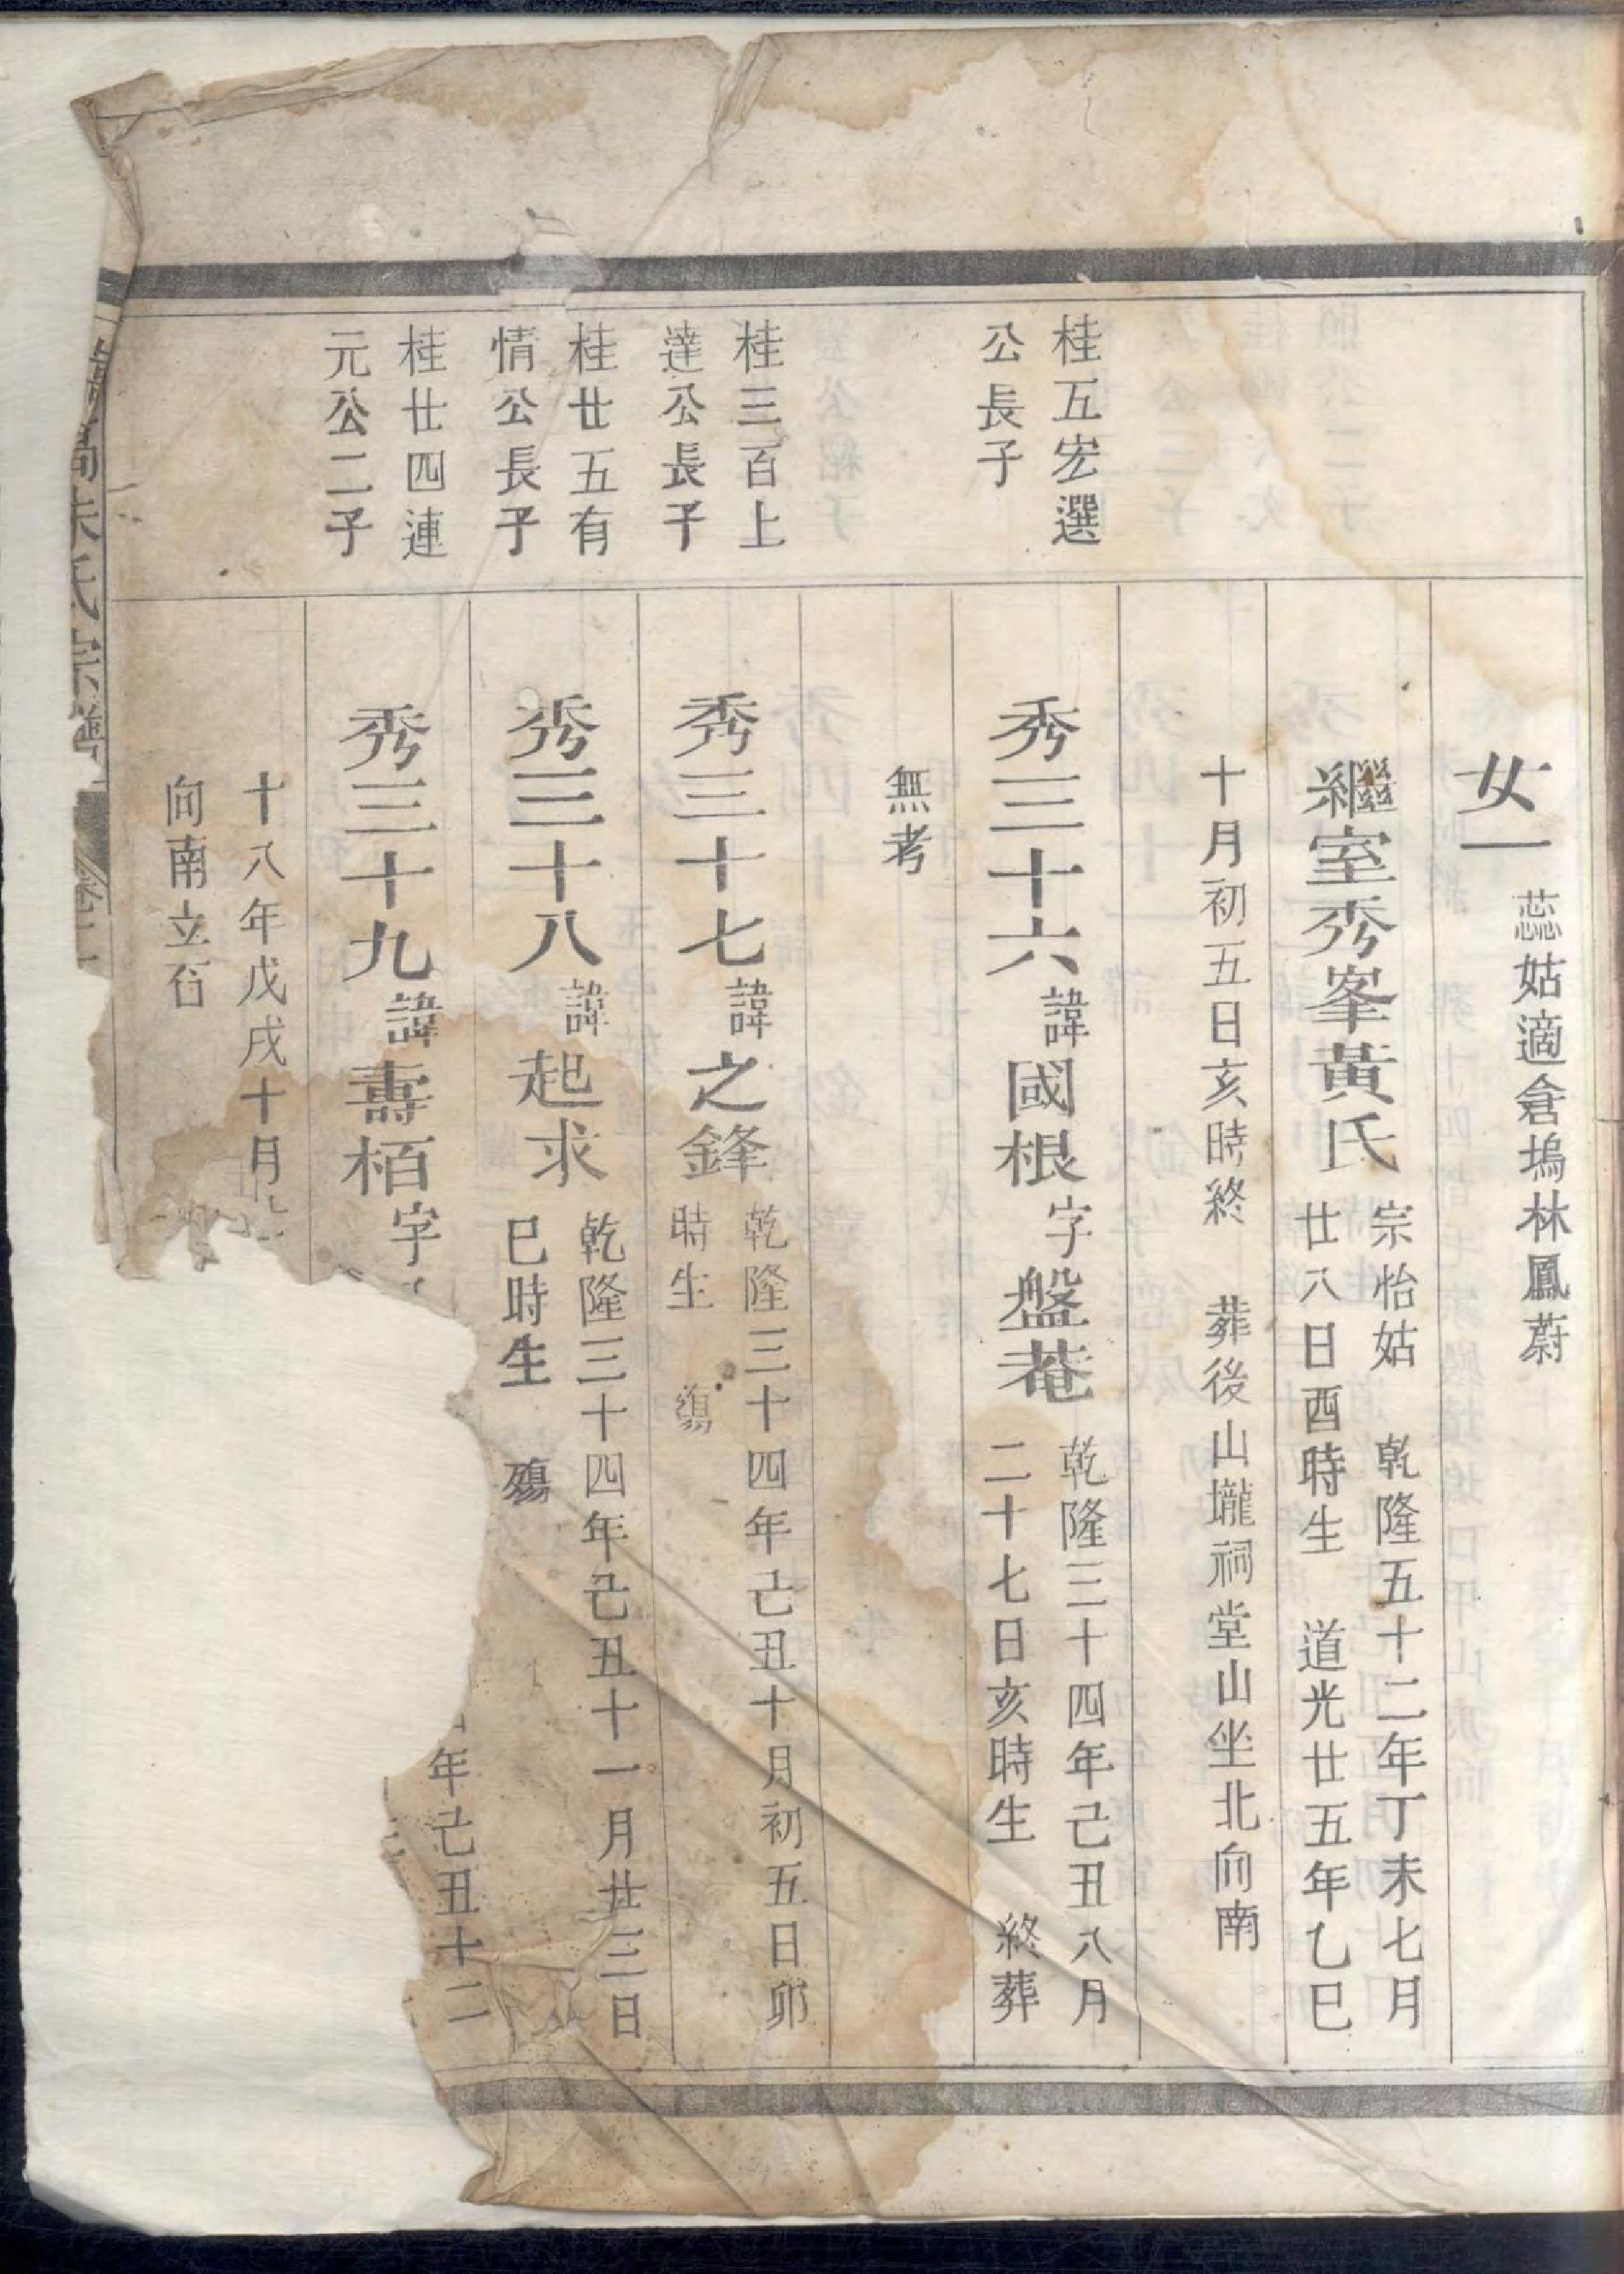 女一
蕊姑適倉塢林鳳蔚
繼室秀峯黃氏
宗怡姑 乾隆五十二年丁未七月
廿八日酉時生 道光廿五年乙巳
十月初五日亥時終 葬後山壠祠堂山坐北向南
桂五宏選
公長子
秀三十六
諱國根
字盤菴
乾隆三十四年己丑八月
二十七日亥時生 終葬
無考
桂三百上
達公長子
秀三十七
諱之鋒
乾隆三十四年己丑十月初五日卯
時生 殤
桂廿五有
情公長子
秀三十八
諱起求
乾隆三十四年己丑十一月廿三日
巳時生 殤
桂廿四連
元公二子
秀三十九
諱壽栢
字
年己丑十二
十八年戊戌十月
向南立石
朱氏宗譜